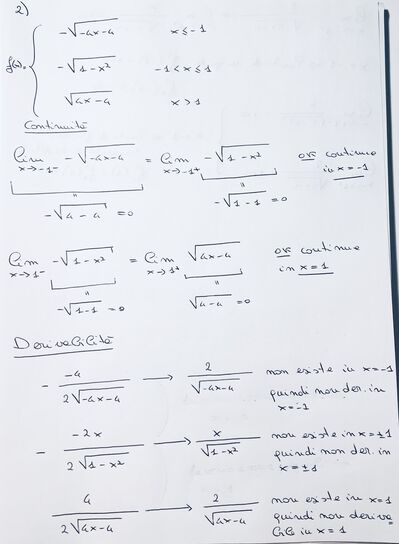 2)
f(x)=
-√(-4x-4)   x ≤ -1
-√(1-x²)   -1 < x ≤ 1
√(4x-4)   x > 1
Continuità
lim x→-1⁻ -√(-4x-4) = lim x→-1⁺ -√(1-x²)   ok continua in x=-1
-√(4-4) = 0   -√(1-1) = 0
lim x→1⁻ -√(1-x²) = lim x→1⁺ √(4x-4)   ok continua in x=1
-√(1-1) = 0   √(4-4) = 0
Derivabilità
- -4 / 2√(-4x-4) → 2 / √(-4x-4)   non existe in x=-1
quindi non der. in
x=-1
- -2x / 2√(1-x²) → x / √(1-x²)   non existe in x=±1
quindi non der. in
x=±1
4 / 2√(4x-4) → 2 / √(4x-4)   non existe in x=1
quindi non deriva
bile in x=1